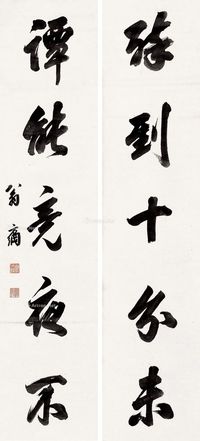 醉到十分未
譚能竟夜不
翁